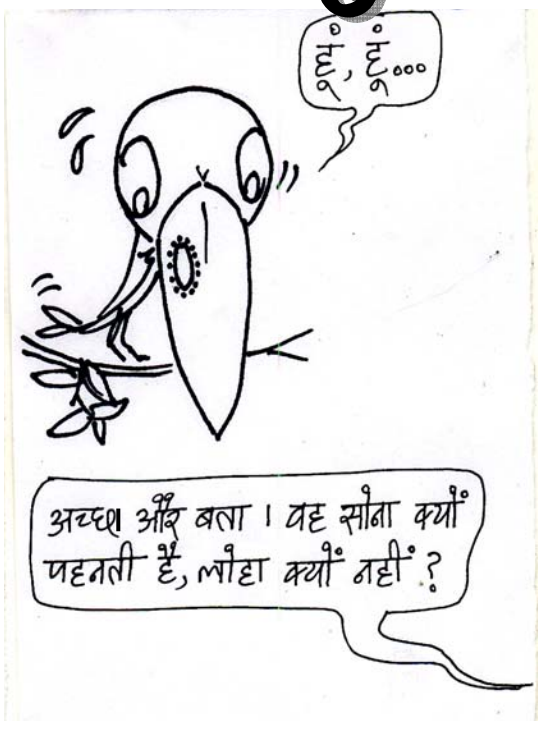 हूं, हूं...
अच्छा और बता । वह सोना क्यों
पहनती है, लोहा क्यों नहीं ?